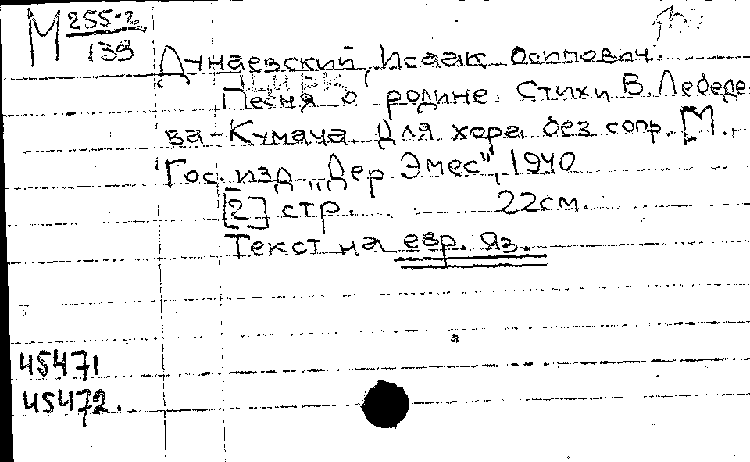 М 255-2
139
Дунаевский, Исаак Осипович.
"ЦИРК"
Песня о родине. Стихи В. Лебеде
ва-Кумача. Для хора без сопр. [М.
Гос. изд. „Дер Эмес“, 1940
[2] стр. 22см.
Текст на евр. яз.
45471
45472.